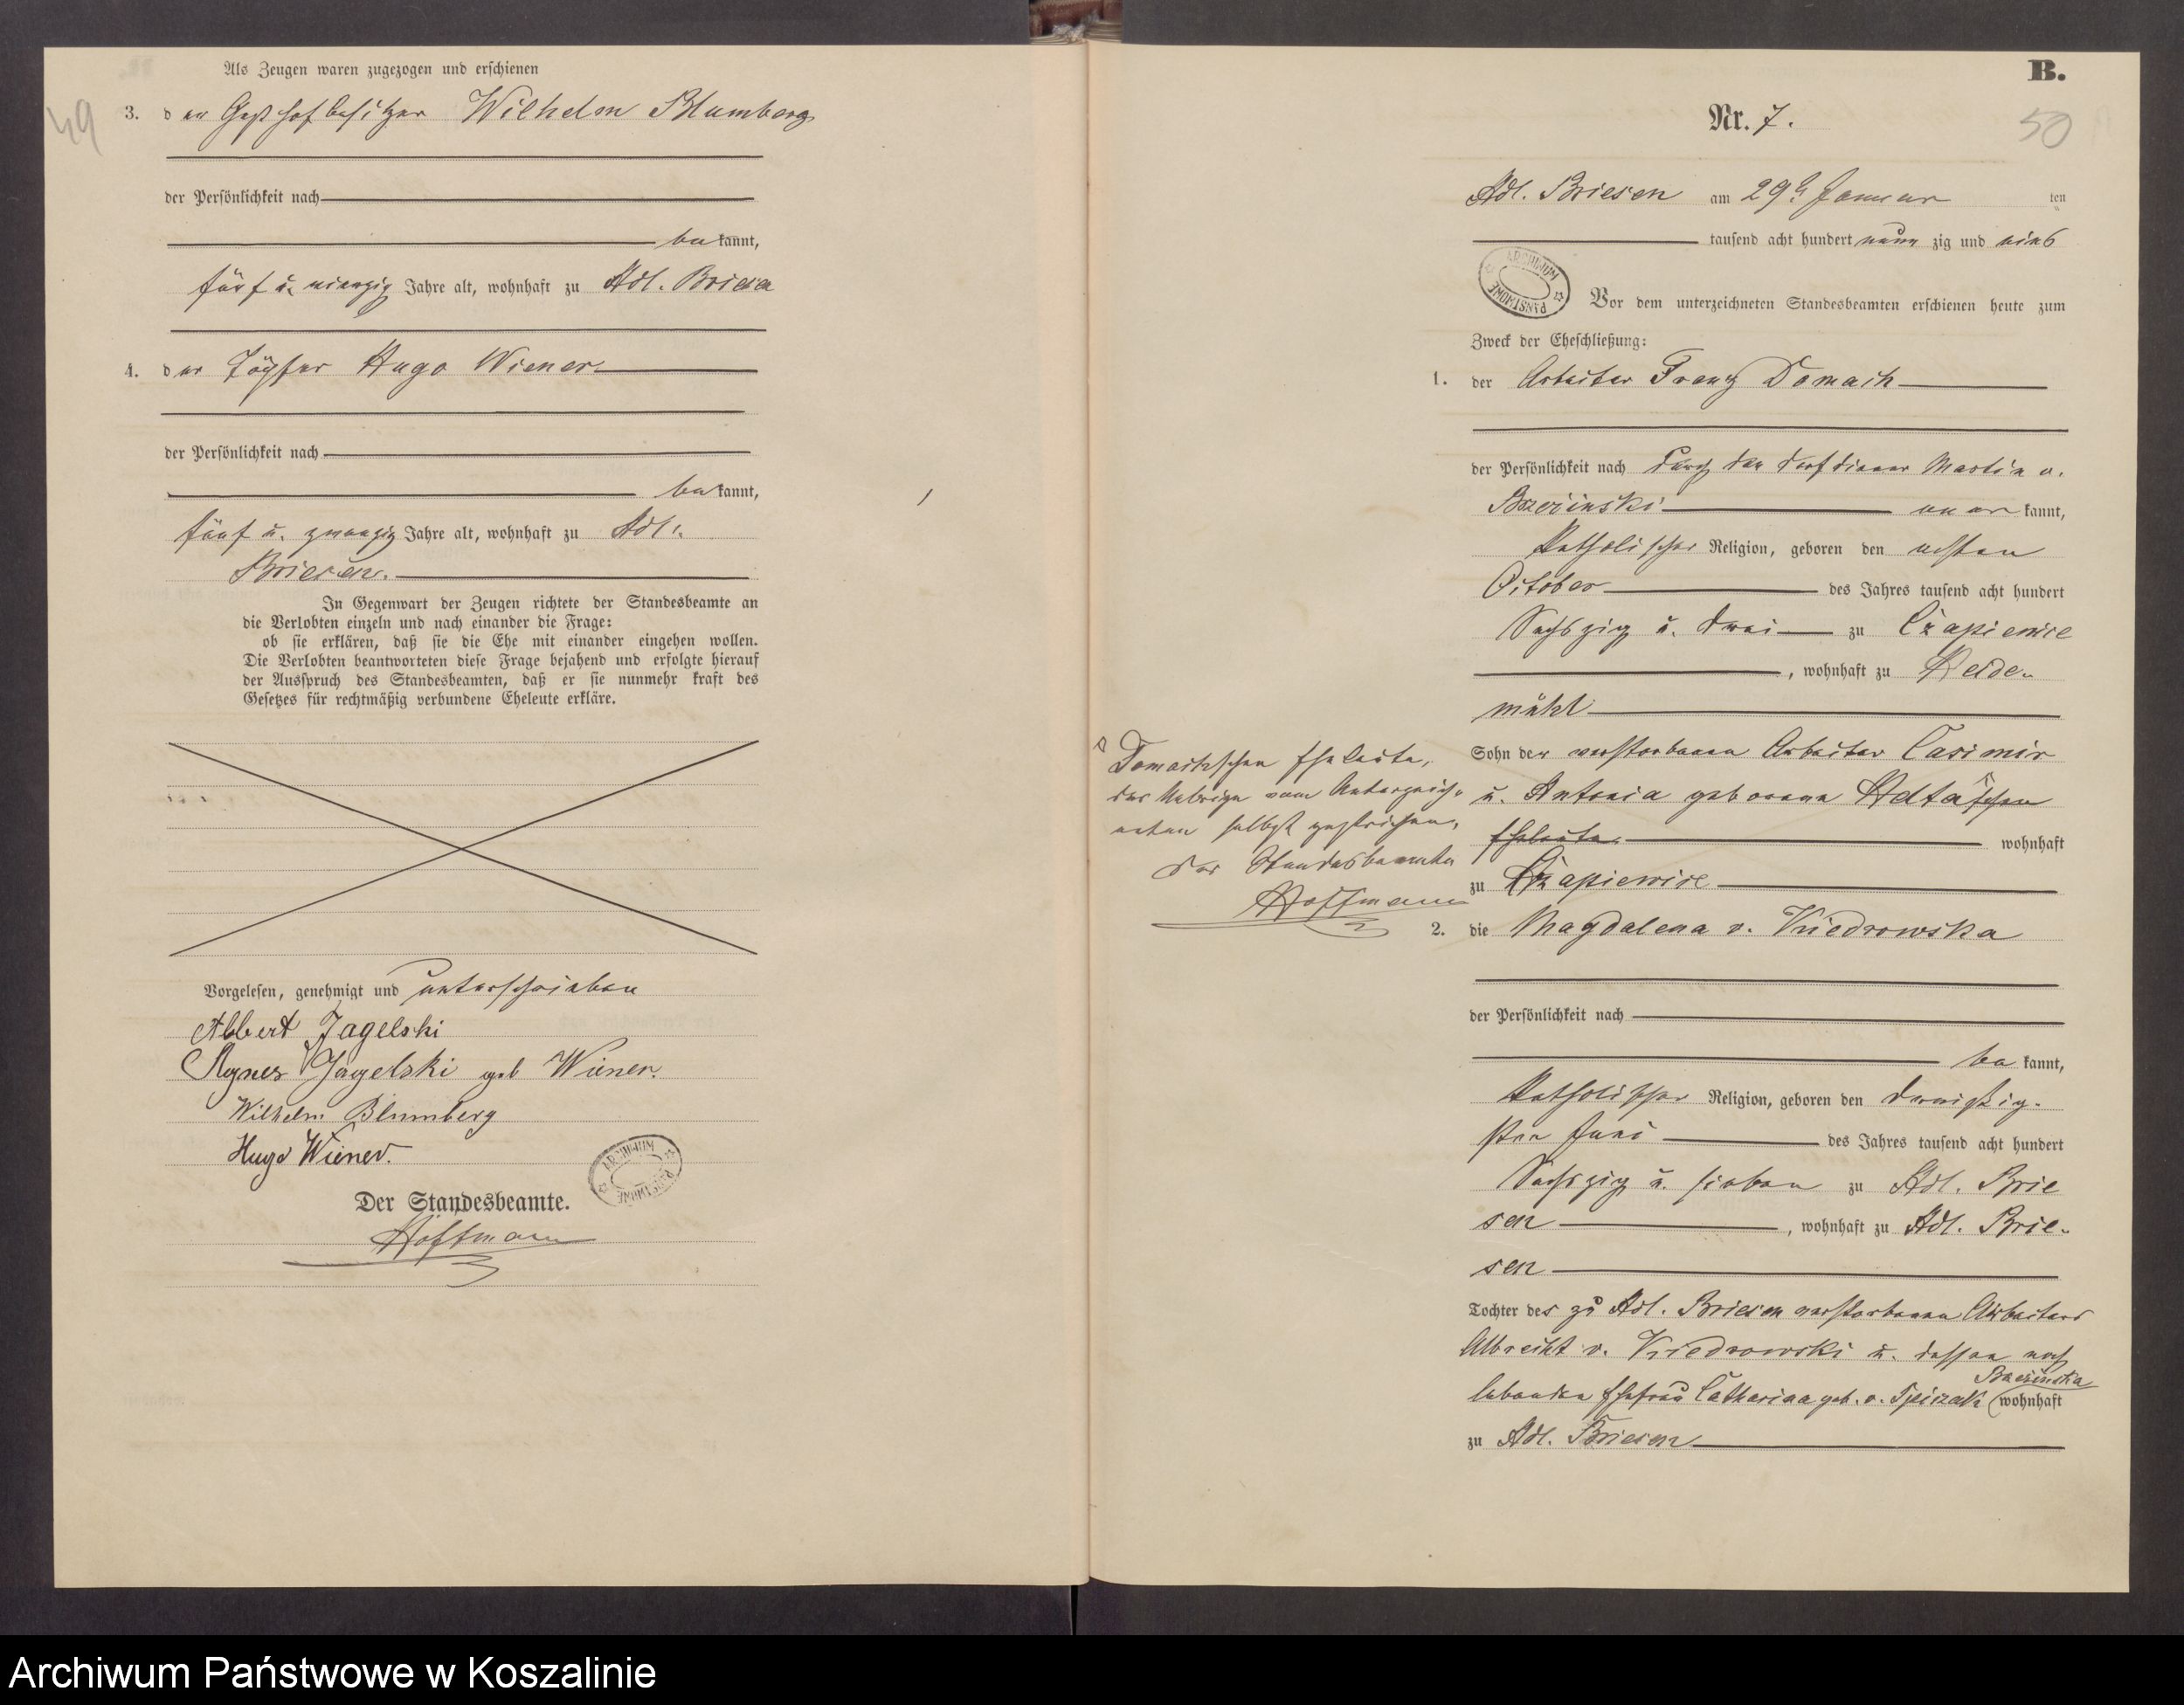 Als Zeugen waren zugezogen und erschienen
49
3. der Gasthofbesitzer Wilhelm Blumberg
der Persönlichkeit nach
bekannt,
fünf u. vierzig Jahre alt, wohnhaft zu Adl. Briesen
4. der Töpfer Hugo Wiener
der Persönlichkeit nach
bekannt,
fünf u. zwanzig Jahre alt, wohnhaft zu Adl.
Briesen.
In Gegenwart der Zeugen richtete der Standesbeamte an
die Verlobten einzeln und nach einander die Frage:
ob sie erklären, daß sie die Ehe mit einander eingehen wollen.
Die Verlobten beantworteten diese Frage bejahend und erfolgte hierauf
der Ausspruch des Standesbeamten, daß er sie nunmehr kraft des
Gesetzes für rechtmäßig verbundene Eheleute erkläre.
Vorgelesen, genehmigt und unterschrieben
Albert Jagelski
Agnes Jagelski geb Wiener.
Wilhelm Blumberg
Hugo Wiener.
ARCHIWUM PAŃSTWOWE
Der Standesbeamte.
Hoffmann
B.
Nr. 7.
50
Adl. Briesen am 29t Januar ten
tausend acht hundert neun zig und eins
ARCHIWUM PAŃSTWOWE
Vor dem unterzeichneten Standesbeamten erschienen heute zum
Zweck der Eheschließung:
1. der Arbeiter Franz Domach
der Persönlichkeit nach durch den Dorfdiener Martin v.
Brzezinski aner kannt,
Katholischer Religion, geboren den ersten
October des Jahres tausend acht hundert
Sechszig u. drei zu Czapiewice
, wohnhaft zu Heide-
mühl
Sohn der verstorbenen Arbeiter Casimir
u. Antonia geborene
Eheleute wohnhaft
zu Czapiewice
Domachschen Eheleute,
das Uebrige vom Unterzeich-
neten selbst gestrichen,
Der Standesbeamte
Hoffmann
2. die Magdalena v. Kiedrowska
der Persönlichkeit nach
be kannt,
Katholischer Religion, geboren den dreißig-
sten Juni des Jahres tausend acht hundert
Sechszig u. sieben zu Adl. Brie
sen , wohnhaft zu Adl. Brie-
sen
Tochter des zu Adl. Briesen verstorbenen Arbeiters
Albrecht v. Kiedrowski u. dessen noch
lebenden Ehefrau Catharina geb. v. Spiczak Brzezinska wohnhaft
zu Adl. Briesen
Archiwum Państwowe w Koszalinie